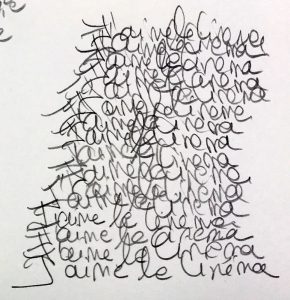 J'aime le cinéma
J'aime le cinéma
J'aime le cinéma
J'aime le cinéma
J'aime le cinéma
J'aime le cinéma
J'aime le cinéma
J'aime le cinéma
J'aime le cinéma
J'aime le cinéma
J'aime le cinéma
J'aime le cinéma
J'aime le cinéma
J'aime le cinéma
J'aime le cinéma